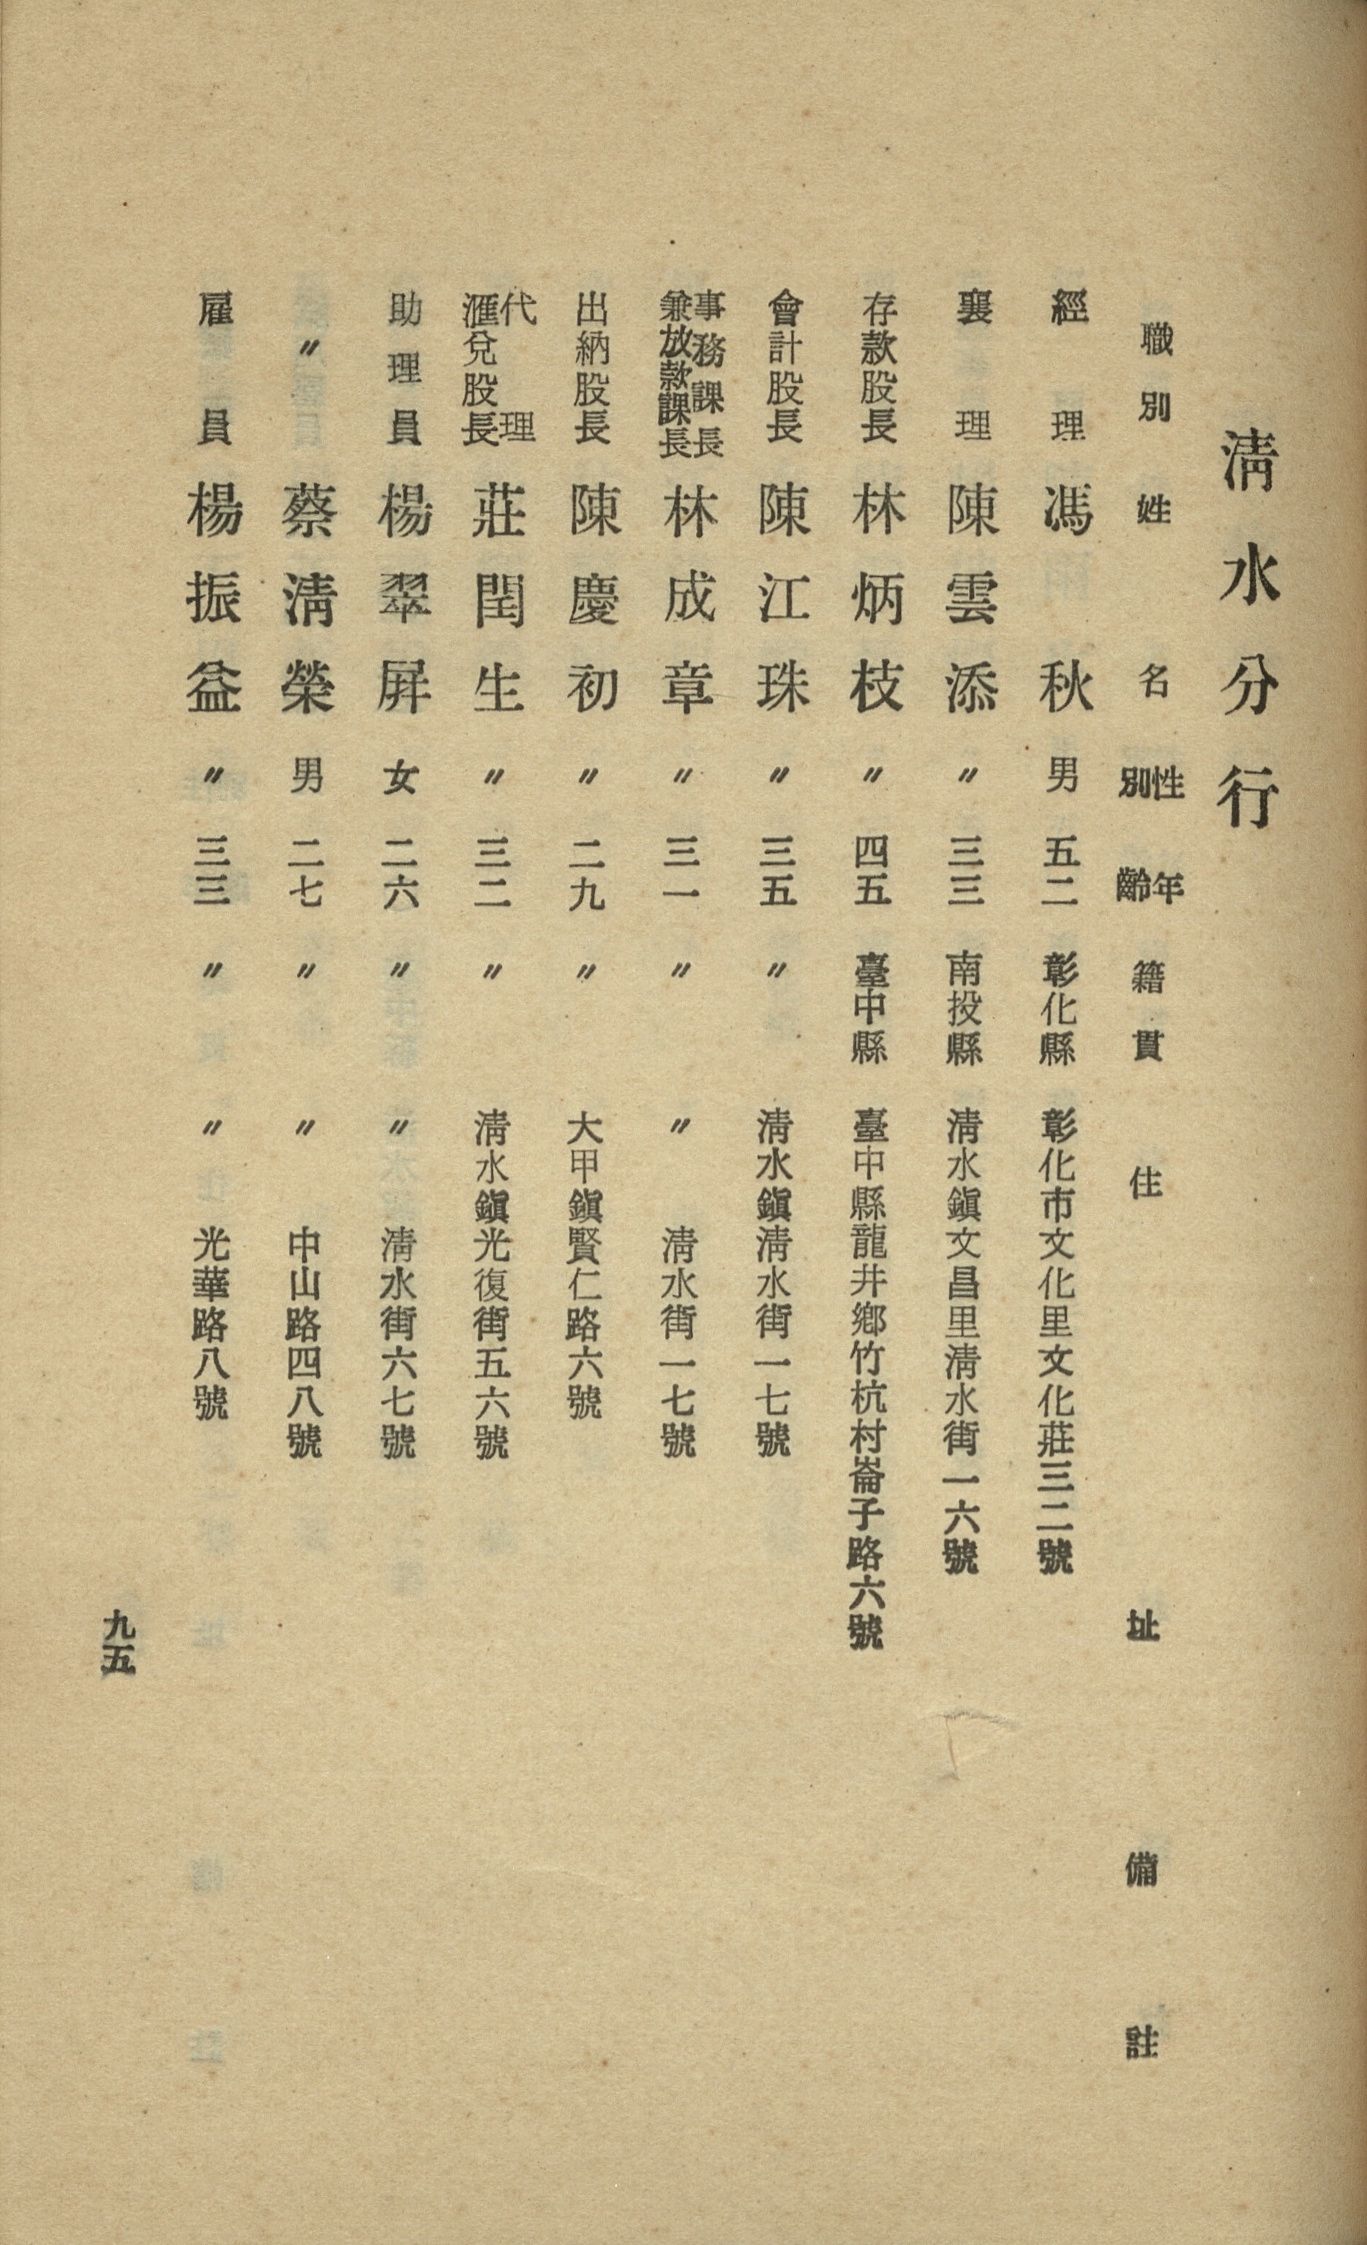 淸水分行
職別 姓名 性別 年齡 籍貫 住址 備註
經理 馮秋 男 五二 彰化縣 彰化市文化里文化莊三二號
襄理 陳雲添 〃 三三 南投縣 淸水鎭文昌里淸水街一六號
存款股長 林炳枝 〃 四五 臺中縣 臺中縣龍井鄕竹杭村崙子路六號
會計股長 陳江珠 〃 三五 〃 淸水鎭淸水街一七號
事務課長兼放款課長 林成章 〃 三一 〃 〃 淸水街一七號
出納股長 陳慶初 〃 二九 〃 大甲鎭賢仁路六號
代理滙兌股長 莊閏生 〃 三二 〃 淸水鎭光復街五六號
助理員 楊翠屛 女 二六 〃 〃 淸水街六七號
〃 蔡淸榮 男 二七 〃 〃 中山路四八號
雇員 楊振益 〃 三三 〃 〃 光華路八號
九五